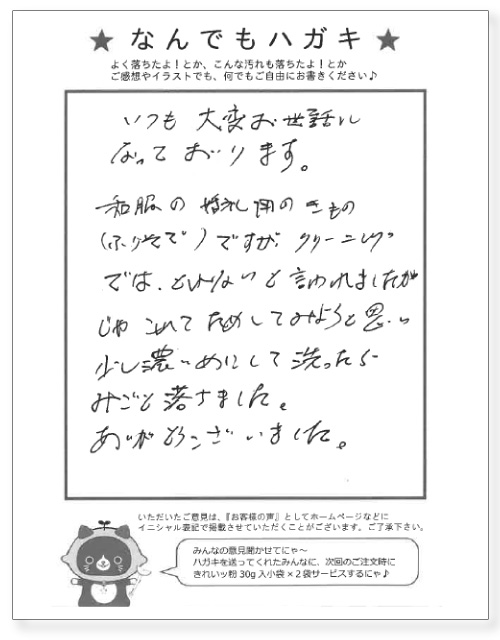 ★ なんでもハガキ ★
よく落ちたよ！とか、こんな汚れも落ちたよ！とか
ご感想やイラストでも、何でもご自由にお書きください♪
いつも 大変お世話に
なって おります。
和服の 婚礼用の きもの
(ふりそで)ですが、クリーニング
では、とれないと言われましたが
じゃ これで ためしてみようと思い
少し濃いめにして洗ったら
みごと落ちました。
ありがとうございました。
いただいたご意見は、『お客様の声』としてホームページなどに
イニシャル表記で掲載させていただくことがございます。ご了承下さい。
みんなの意見聞かせてにゃ〜
ハガキを送ってくれたみんなに、次回のご注文時に
きれいッ粉 30g 入小袋×2袋サービスするにゃ♪